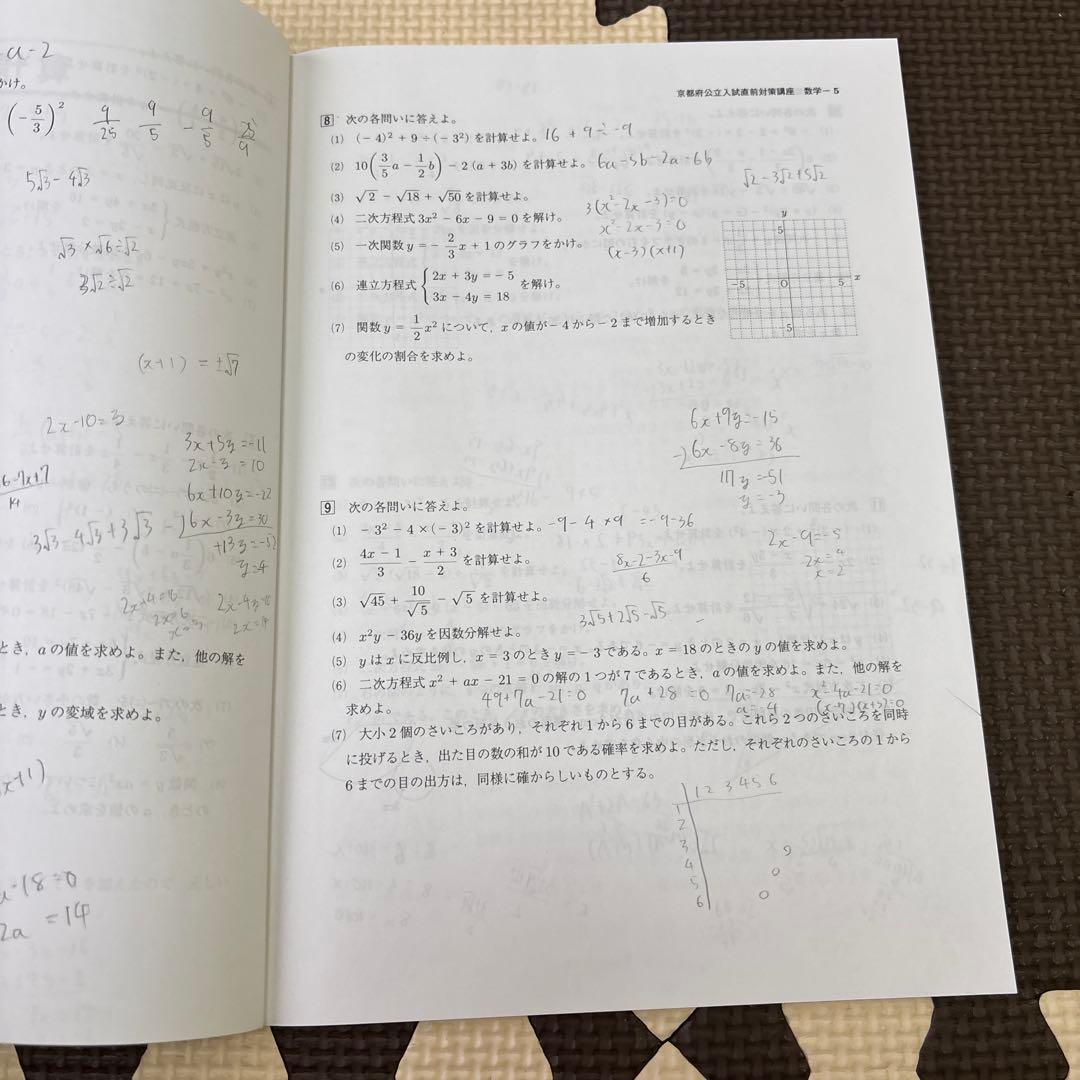 a-2
かけ。
(-5/3)² 9/25 9/5 -9/5
5√3-4√3
√3×√6÷√2
3√2÷√2
(x+1)=±√7
2x-10=3
3x+5y=-11
2x-y=10
6x+10y=-22
6x-3y=30
+13y=-52
3√3-4√3+3√3
とき，aの値を求めよ。また，他の解を
とき，yの変域を求めよ。
x+1)
-18=0
2a=14
京都府公立入試直前対策講座 数学－5
8 次の各問いに答えよ。
(1) (-4)²+9÷(-3²)を計算せよ。 16+9÷-9
(2) 10(3/5a-1/2b)-2(a+3b)を計算せよ。 6a-5b-2a-6b
(3) √2-√18+√50を計算せよ。 √2-3√2+5√2
(4) 二次方程式3x²-6x-9=0を解け。 3(x²-2x-3)=0
x²-2x-3=0
(x-3)(x+1)
(5) 一次関数y=-2/3x+1のグラフをかけ。
y
5
-5 O 5 x
-5
(6) 連立方程式{2x+3y=-5 3x-4y=18を解け。
(7) 関数y=1/2x²について，xの値が-4から-2まで増加するとき
の変化の割合を求めよ。
6x+9y=-15
-)6x-8y=36
17y=-51
y=-3
2x-9=-5
2x=4
x=2
9 次の各問いに答えよ。
(1) -3²-4×(-3)²を計算せよ。 -9-4×9 =-9-36
(2) (4x-1)/3-(x+3)/2を計算せよ。 (8x-2-3x-9)/6
(3) √45+10/√5-√5を計算せよ。 3√5+2√5-√5
(4) x²y-36yを因数分解せよ。
(5) yはxに反比例し，x=3のときy=-3である。x=18のときのyの値を求めよ。
(6) 二次方程式x²+ax-21=0の解の1つが7であるとき，aの値を求めよ。また，他の解を
求めよ。 49+7a-21=0 7a+28=0 7a=-28 a=-4 x²-4a-21=0 (x-7)(x+3)=0
(7) 大小2個のさいころがあり，それぞれ1から6までの目がある。これら2つのさいころを同時
に投げるとき，出た目の数の和が10である確率を求めよ。ただし，それぞれのさいころの1から
6までの目の出方は，同様に確からしいものとする。
1 2 3 4 5 6
1
2
3
4
5
6